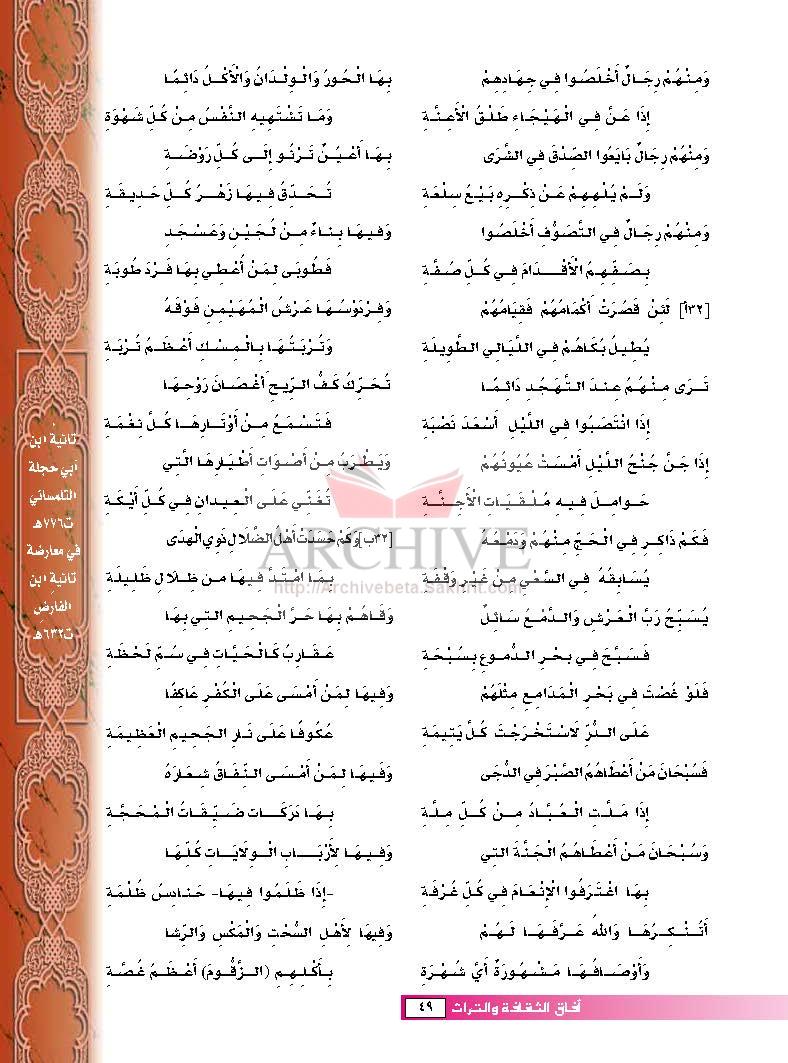 وَمِنْهُمْ رِجَالٌ أَخْلَصُوا فِي جِهَادِهِمْ
إِذَا عَنَّ فِي الْهَيْجَاءِ طَلْقُ الْأَعِنَّةِ
وَمِنْهُمْ رِجَالٌ بَايَعُوا الصِّدْقَ فِي الشَّرَى
وَلَمْ يُلْهِهِمْ عَنْ ذِكْرِهِ بَيْعُ سِلْعَةِ
وَمِنْهُمْ رِجَالٌ فِي التَّصَوُّفِ أَخْلَصُوا
بِصَفِّهِمُ الْأَقْدَامَ فِي كُلِّ صُفَّةِ
[٣٢أ] لَئِنْ قَصُرَتْ أَكْمَامُهُمْ فَقِيَامُهُمْ
يُطِيلُ بُكَاهُمْ فِي اللَّيَالِي الطَّوِيلَةِ
تَرَى مِنْهُمُ عِنْدَ التَّهَجُّدِ دَائِمًا
إِذَا انْتَصَبُوا فِي اللَّيْلِ أَسْعَدَ نَصْبَةِ
إِذَا جَنَّ جُنْحُ اللَّيْلِ أَمْسَتْ عُيُونُهُمْ
حَوَامِلَ فِيهِ مُلْقَيَاتِ الْأَجِنَّةِ
فَكَمْ ذَاكِرٍ فِي الْحَجِّ مِنْهُمْ وَدَمْعُهُ
يُسَابِقُهُ فِي السَّعْيِ مِنْ غَيْرِ وَقْفَةِ
يُسَبِّحُ رَبَّ الْعَرْشِ وَالدَّمْعُ سَائِلٌ
فَسَبَّحَ فِي بَحْرِ الدُّمُوعِ بِسُبْحَةِ
فَلَوْ غُصْتَ فِي بَحْرِ الْمَدَامِعِ مِثْلَهُمْ
عَلَى الدُّرِّ لَاسْتَخْرَجْتَ كُلَّ يَتِيمَةِ
فَسُبْحَانَ مَنْ أَعْطَاهُمُ الصَّبْرَ فِي الدُّجَى
إِذَا مَلَّتِ الْعُبَّادُ مِنْ كُلِّ مِلَّةِ
وَسُبْحَانَ مَنْ أَعْطَاهُمُ الْجَنَّةَ الَّتِي
بِهَا اغْتَرَفُوا الْإِنْعَامَ فِي كُلِّ غُرْفَةِ
أَتُنْكِرُهَا وَاللهُ عَرَّفَهَا لَهُمْ
وَأَوْصَافُهَا مَشْهُورَةٌ أَيَّ شُهْرَةِ
بِهَا الْحُورُ وَالْوِلْدَانُ وَالْأَكْلُ دَائِمًا
وَمَا تَشْتَهِيهِ النَّفْسُ مِنْ كُلِّ شَهْوَةِ
بِهَا أَعْيُنٌ تَرْنُو إِلَى كُلِّ رَوْضَةِ
تُحَدِّقُ فِيهَا زَهْرُ كُلِّ حَدِيقَةِ
وَفِيهَا بِنَاءٌ مِنْ لُجَيْنٍ وَعَسْجَدٍ
فَطُوبَى لِمَنْ أُعْطِي بِهَا فَرْدَ طُوبَةِ
وَفِرْدَوْسُهَا عَرْشُ الْمُهَيْمِنِ فَوْقَهُ
وَتُرْبَتُهَا بِالْمِسْكِ أَعْظَمُ تُرْبَةِ
تُحَرِّكُ كَفُّ الرِّيحِ أَغْصَانَ رَوْحِهَا
فَتَسْمَعُ مِنْ أَوْتَارِهَا كُلَّ نِغْمَةِ
وَيَطْرَبُ مِنْ أَصْوَاتِ أَطْيَارِهَا الَّتِي
تُغَنِّي عَلَى الْعِيدَانِ فِي كُلِّ أَيْكَةِ
[٣٢ب] وَكَمْ حَسَدَتْ أَهْلُ الضَّلَالِ ذَوِي الْهُدَى
بِمَا امْتَدَّ فِيهَا مِنْ ظِلَالٍ ظَلِيلَةِ
وَقَاهُمْ بِهَا حَرَّ الْجَحِيمِ الَّتِي بِهَا
عَقَارِبُ كَالْحَيَّاتِ فِي سُمِّ لَحْظَةِ
وَفِيهَا لِمَنْ أَمْسَى عَلَى الْكُفْرِ عَاكِفًا
عُكُوفًا عَلَى نَارِ الْجَحِيمِ الْعَظِيمَةِ
وَفِيهَا لِمَنْ أَمْسَى النِّفَاقُ شِعَارَهُ
بِهَا دَرَكَاتٌ ضَيِّقَاتُ الْمَحَجَّةِ
وَفِيهَا لِأَرْبَابِ الْوِلَايَاتِ كُلِّهَا
-إِذَا ظَلَمُوا فِيهَا- حَنَادِسُ ظُلْمَةِ
وَفِيهَا لِأَهْلِ السُّحْتِ وَالْمَكْسِ وَالرِّشَا
بِأَكْلِهِمِ (الزَّقُّومَ) أَعْظَمُ غُصَّةِ
تائية ابن
أبي حجلة
التلمساني
ت٧٧٦هـ
في معارضة
تائية ابن
الفارض
ت٦٣٢هـ
ARCHIVE
http://Archivebeta.Sakhrit.com
آفاق الثقافة والتراث ٤٩